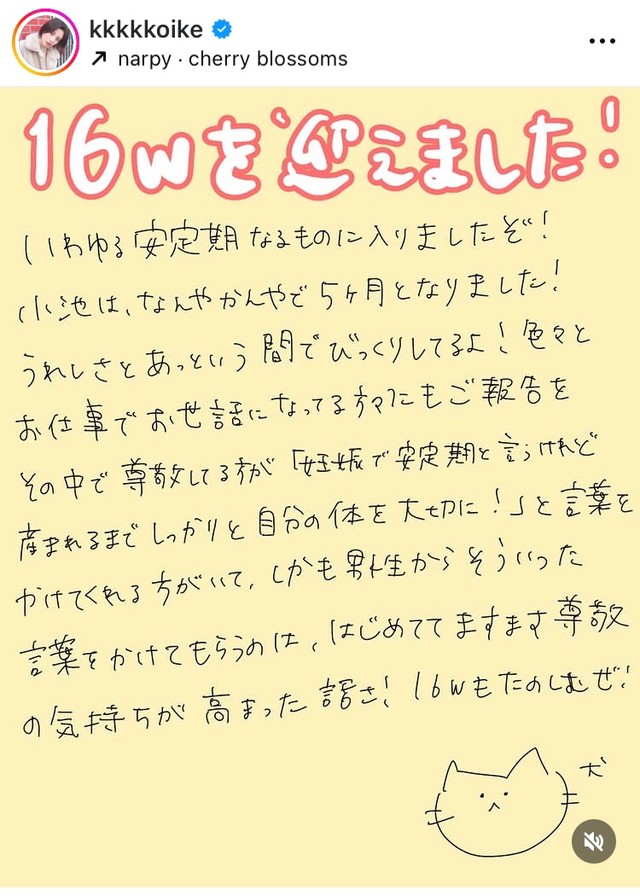 kkkkkoike
narpy · cherry blossoms
16wを迎えました!
いわゆる安定期なるものに入りましたぞ!
小池は、なんやかんやで5ヶ月となりました!
うれしさとあっという間でびっくりしてるよ!色々と
お仕事でお世話になってる方々にもご報告を
その中で尊敬してる方が「妊娠で安定期と言うけれど
産まれるまでしっかりと自分の体を大切に!」と言葉を
かけてくれる方がいて、しかも男性からそういった
言葉をかけてもらうのは、はじめててますます尊敬
の気持ちが高まった話さ!16wもたのしむぜ!
犬